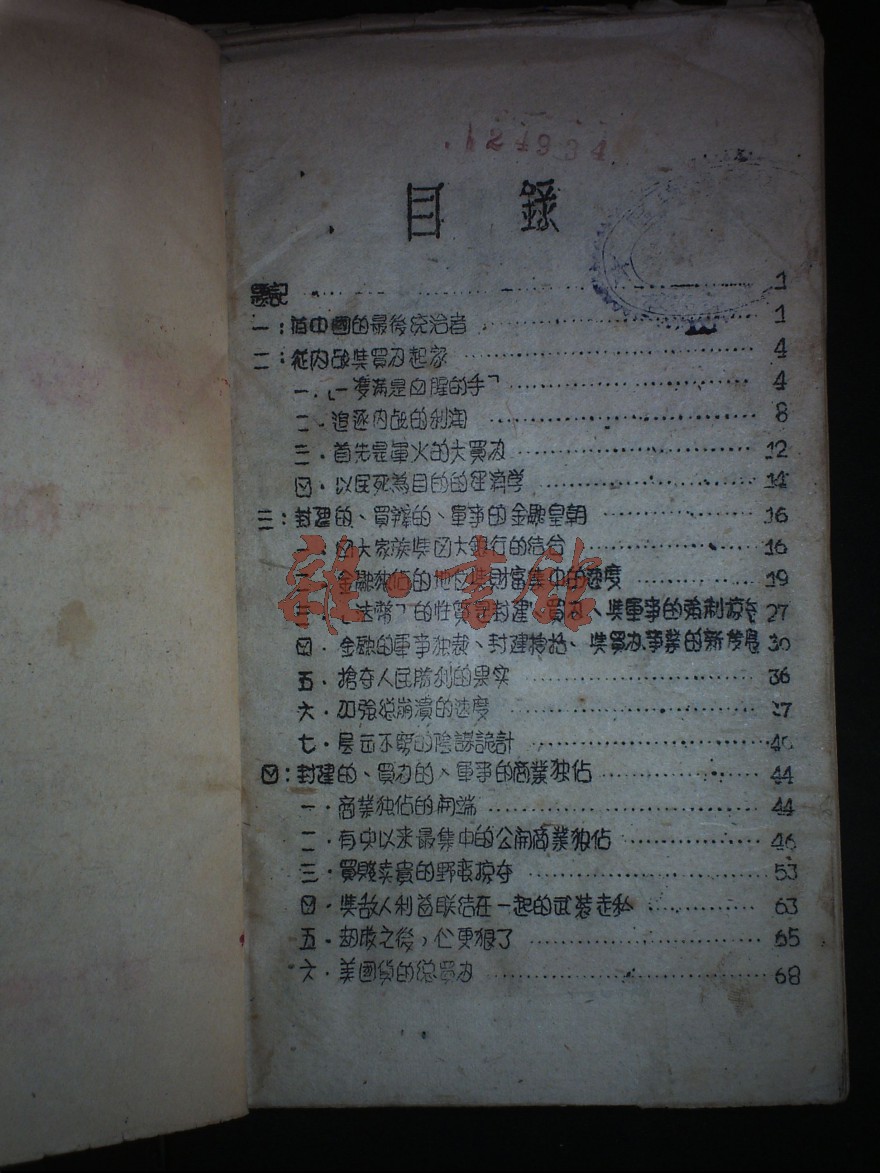 124934
目 錄
題記 1
一:舊中國的最後統治者 1
二:從内战與買办起家 4
一.「一双满是血腥的手」 4
二.追逐内战的利潤 8
三.首先是軍火的大買办 12
四.以民死為目的的经濟学 14
三:封建的、買辦的、軍事的金融皇朝 16
一.四大家族與四大銀行的结合 16
二.金融独佔的地位與財富集中的速度 19
三.「法幣」的性質是封建、買办、與軍事的強制掠夺 27
四.金融的軍事独裁、封建 、與買办事業的新發展 30
五.搶夺人民勝利的果实 36
六.加強總崩潰的速度 37
七.层出不窮的陰謀詭計 40
四:封建的、買办的、軍事的商業独佔 44
一.商業独佔的開端 44
二.有史以来最集中的公開商業独佔 46
三.買賤卖貴的野蛮掠夺 53
四.與敌人利益联结在一起的武装走私 63
五.劫收之後,心更狠了 65
六.美國貨的总買办 68
雜·書館